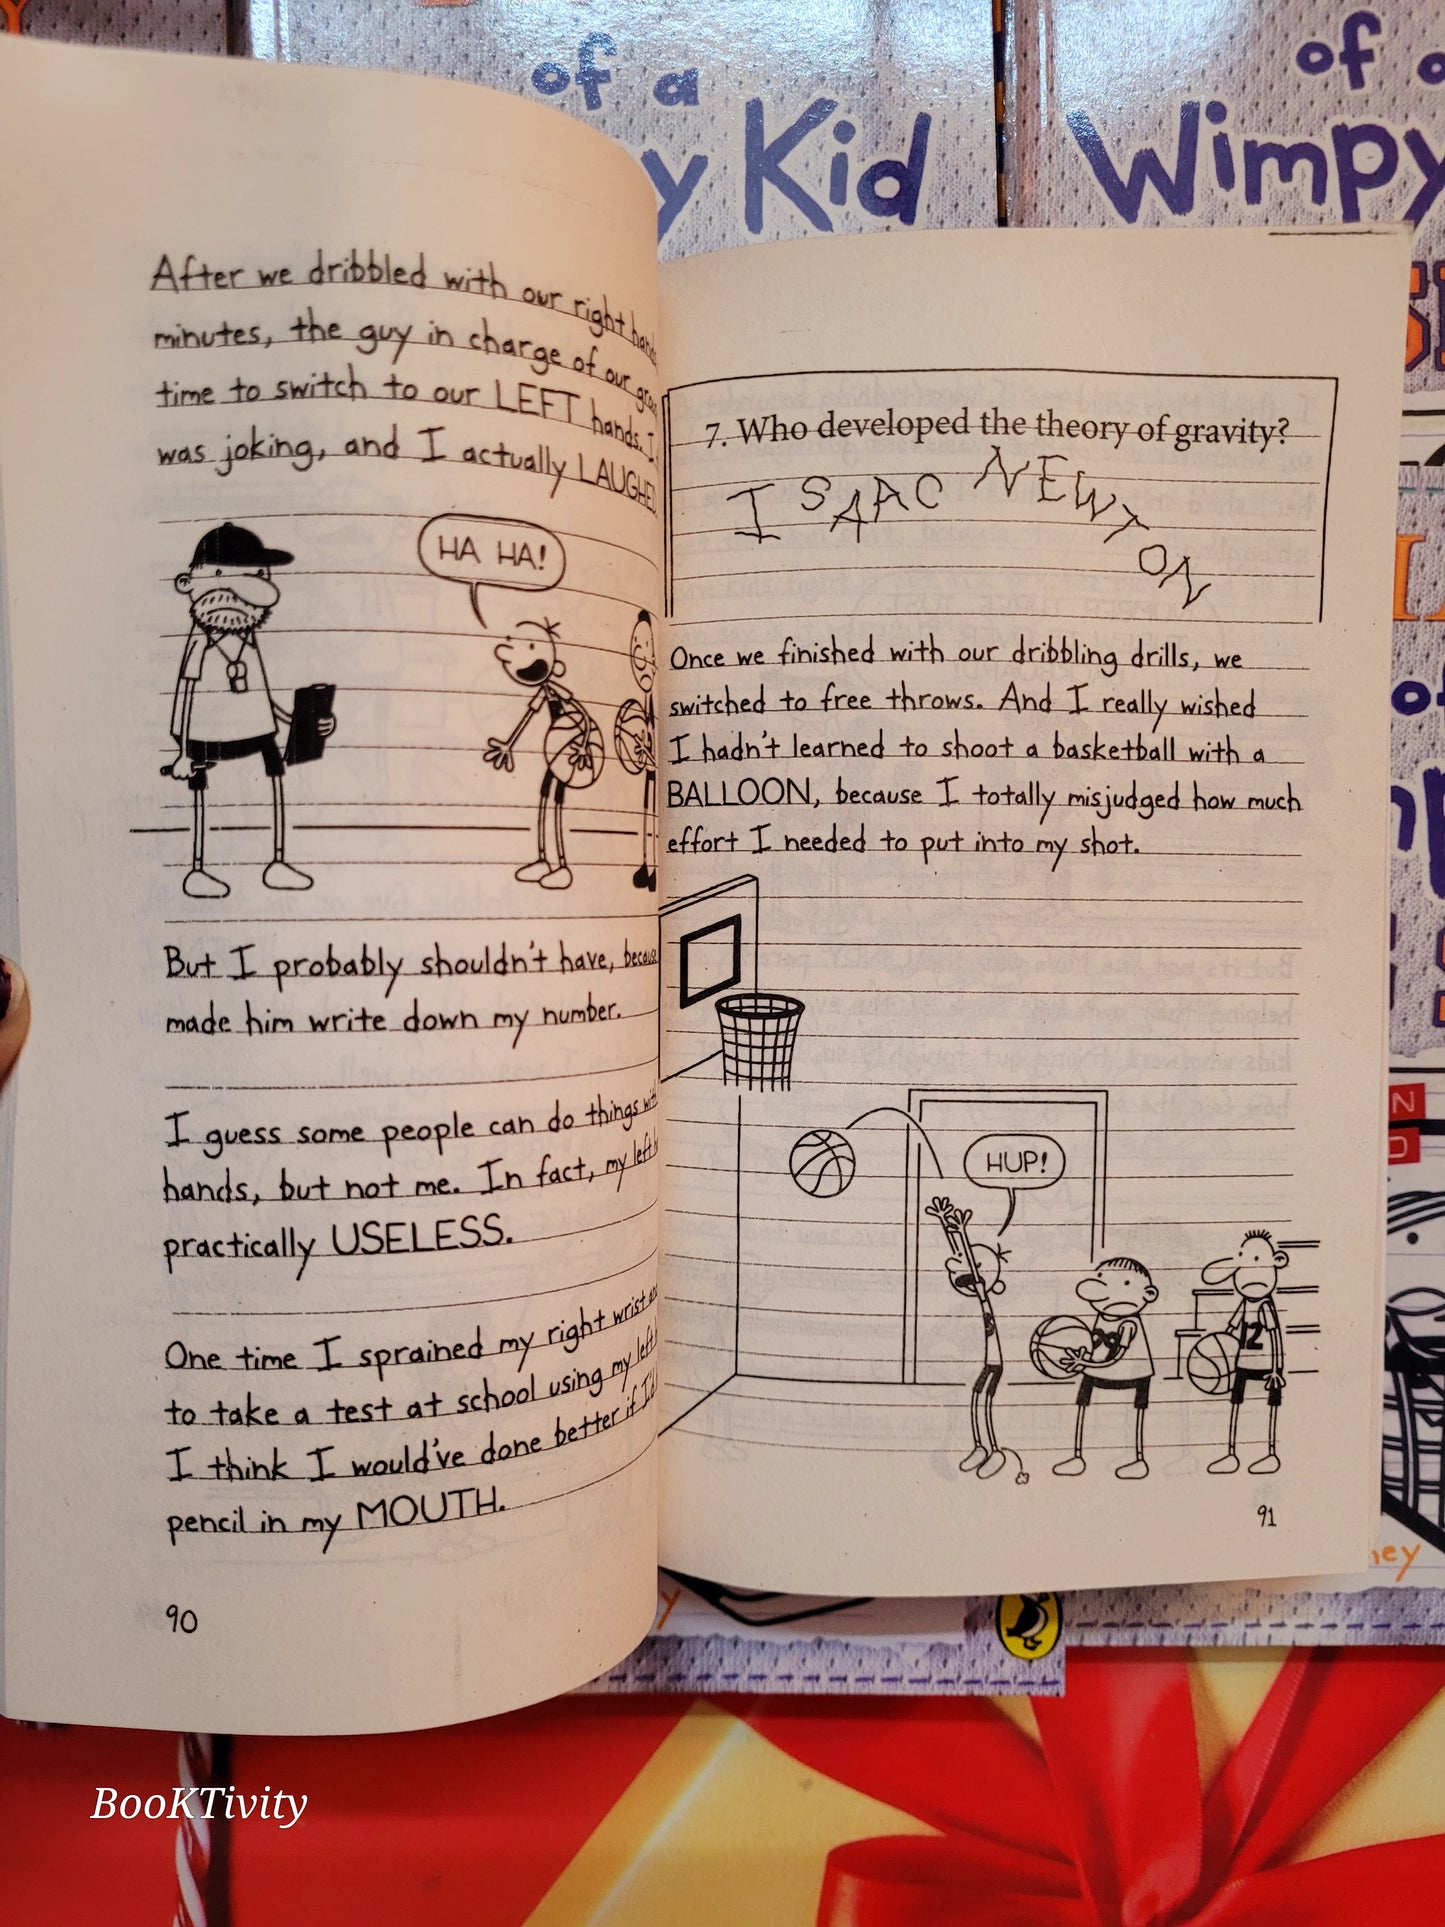 of a
y Kid
of a
Wimpy
After we dribbled with our right hands
minutes, the guy in charge of our grou
time to switch to our LEFT hands. I
was joking, and I actually LAUGHED
HA HA!
But I probably shouldn't have, because
made him write down my number.
I guess some people can do things with
hands, but not me. In fact, my left h
practically USELESS.
One time I sprained my right wrist and
to take a test at school using my left h
I think I would've done better if I'd
pencil in my MOUTH.
90
7. Who developed the theory of gravity?
ISAAC NEWTON
Once we finished with our dribbling drills, we
switched to free throws. And I really wished
I hadn't learned to shoot a basketball with a
BALLOON, because I totally misjudged how much
effort I needed to put into my shot.
HUP!
12
91
BooKTivity